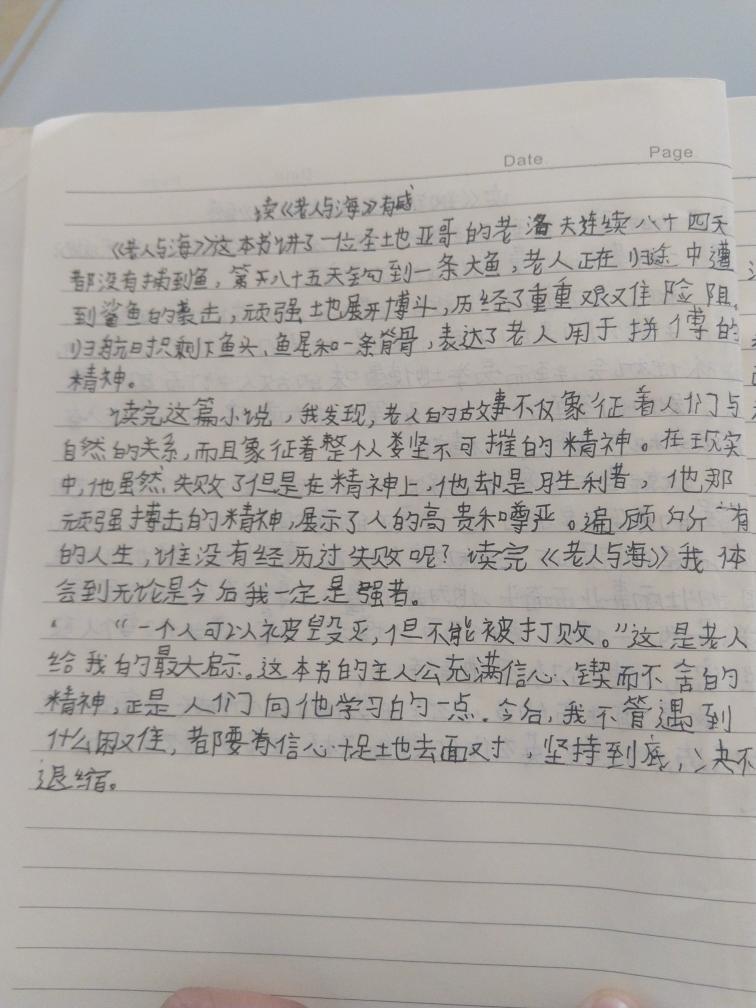 Date
Page
读《老人与海》有感
《老人与海》这本书讲了一位圣地亚哥的老渔夫连续八十四天
都没有捕到鱼，第八十五天钓到一条大鱼，老人正在归途中遭
到鲨鱼的袭击，顽强地展开博斗，历经了重重艰难险阻。
归航时只剩下鱼头、鱼尾和一条脊骨，表达了老人用于拼博的
精神。
读完这篇小说，我发现，老人的故事不仅象征着人们与
自然的关系，而且象征着整个人类坚不可摧的精神。在现实
中，他虽然失败了但是在精神上，他却是胜利者，他那
顽强搏击的精神，展示了人的高贵和尊严。遍顾所有
的人生，谁没有经历过失败呢？读完《老人与海》我体
会到无论是今后我一定是强者。
“一个人可以被毁灭，但不能被打败。”这是老人
给我的最大启示。这本书的主人公充满信心、锲而不舍的
精神，正是人们向他学习的一点。今后，我不管遇到
什么困难，都要有信心十足地去面对，坚持到底，决不
退缩。